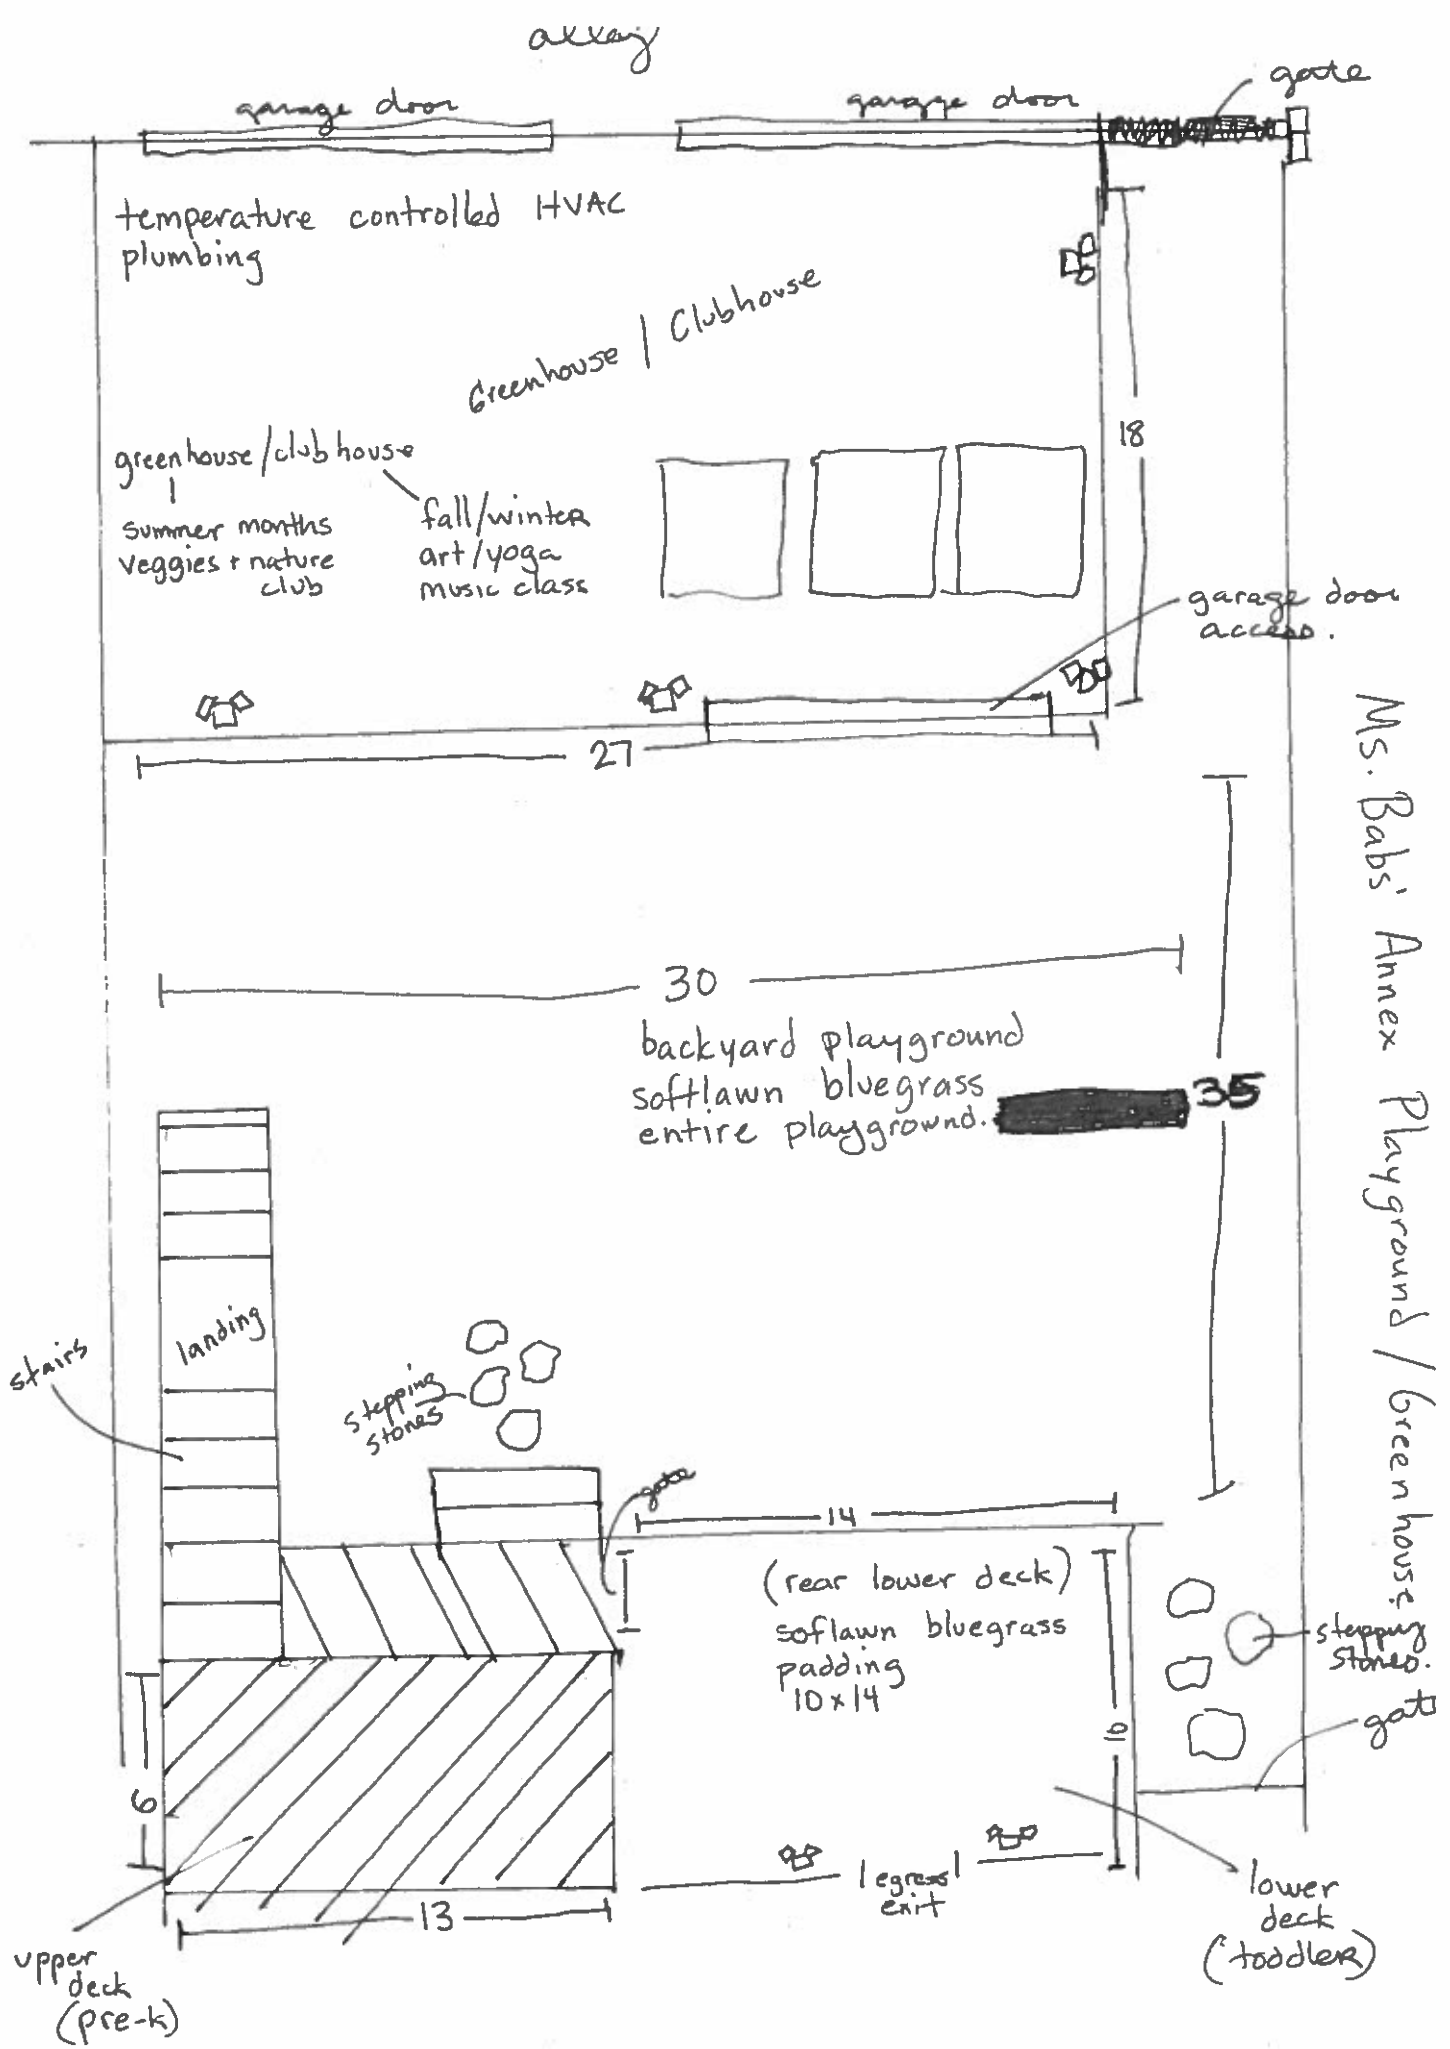 alley
garage door
garagge door
gate
temperature controlled HVAC
plumbing
Greenhouse / Clubhouse
18
greenhouse/clubhouse
summer months
veggies + nature
club
fall/winter
art/yoga
music class
garage door
access.
27
Ms. Babs' Annex Playground / Greenhouse
30
backyard playground
softlawn bluegrass
entire playground.
35
landing
stairs
stepping
stones
gate
14
(rear lower deck)
soflawn bluegrass
padding
10 x 14
10
stepping
stones.
gate
6
egress
exit
13
lower
deck
(toddler)
upper
deck
(pre-k)